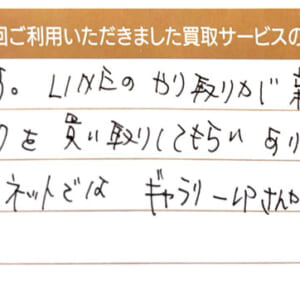 回ご利用いただきました買取サービスの
す。LINEのやり取りが
を買い取りしてもらいあり
ネットでは ギャラリーIPさんか